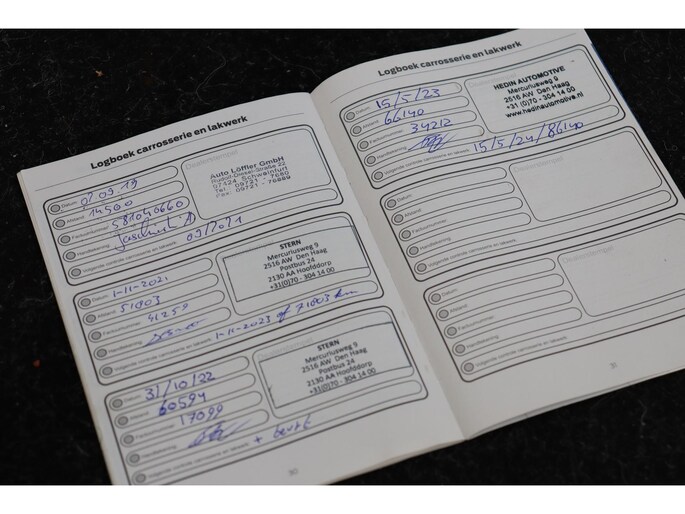 Logboek carrosserie en lakwerk
Datum: 02.09.19
Afstand: 14500
Factuurnummer: 581040660
Handtekening:
Volgende controle carrosserie en lakwerk: 09/2021
Dealerstempel
Auto Löffler GmbH
Rudolf-Diesel-Straße 22
97424 Schweinfurt
Tel. 09721 - 7680
Fax. 09721 - 76889
Datum: 1-11-2021
Afstand: 51003
Factuurnummer: 41259
Handtekening:
Volgende controle carrosserie en lakwerk: 1-11-2023 of 71003 km
STERN
Mercuriusweg 9
2516 AW Den Haag
Postbus 24
2130 AA Hoofddorp
+31(0)70 - 304 14 00
Datum: 31/10/22
Afstand: 60594
Factuurnummer: 17099
Handtekening:
Volgende controle carrosserie en lakwerk:
STERN
Mercuriusweg 9
2516 AW Den Haag
Postbus 24
2130 AA Hoofddorp
+31(0)70 - 304 14 00
30
Logboek carrosserie en lakwerk
Datum: 15/5/23
Afstand: 66140
Factuurnummer: 34212
Handtekening:
Volgende controle carrosserie en lakwerk: 15/5/24/86140
HEDIN AUTOMOTIVE
Mercuriusweg 9
2516 AW Den Haag
+31 (0)70 - 304 14 00
www.hedinautomotive.nl
Datum:
Afstand:
Factuurnummer:
Handtekening:
Volgende controle carrosserie en lakwerk:
Dealerstempel
Datum:
Afstand:
Factuurnummer:
Handtekening:
Volgende controle carrosserie en lakwerk:
Dealerstempel
31